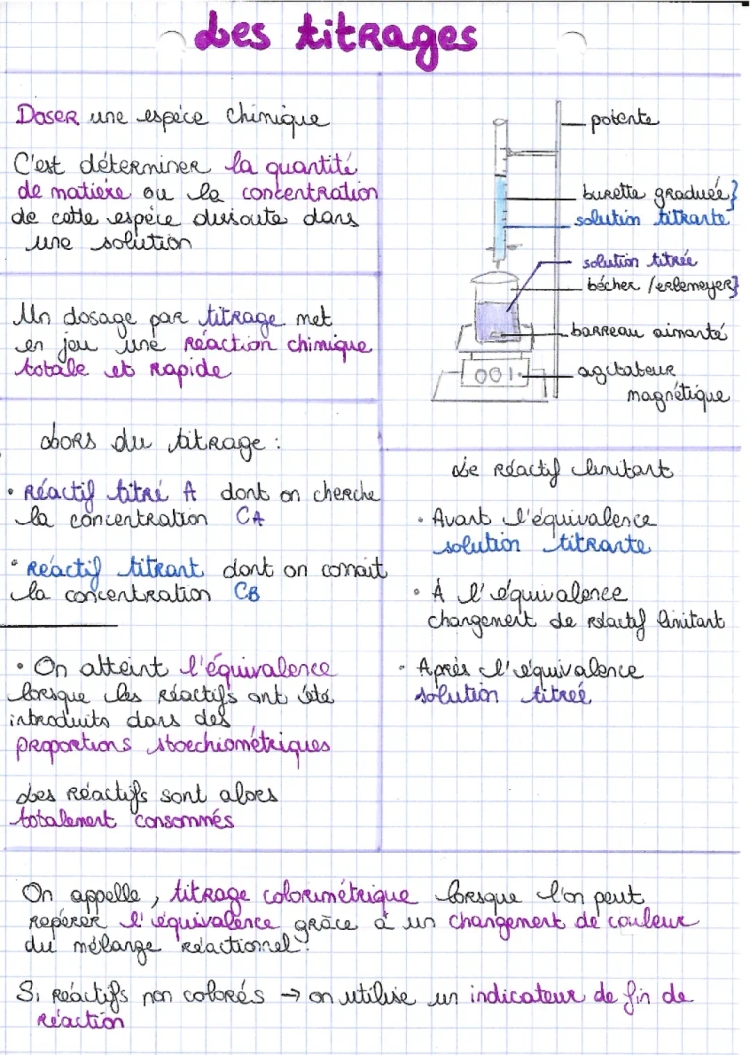 Les titRages
DoseR une espèce chimique
C'est déterminer la quantité
de matière ou la concentration
de cette espèce dissoute dans
une solution
Un dosage par titRage met
en jeu une Réaction chimique
totale et Rapide
LORS du titrage :
• Réactif titré A dont on cherche
la concentration CA
• Réactif titRant dont on connait
la concentration CB
• On atteint l'équivalence
lorsque les réactifs ont été
introduits dans des
proportions stoechiométriques
Les Réactifs sont alors
totalement consommés
potente
burette graduée}
solution titrante
solution titrée
bécher /erlemeyer}
barreau aimanté
001
agitateur
magnétique
Le Réactif limitant
• Avant l'équivalence
solution titRante
• À l'équivalence
changement de réactif limitant
• Après l'équivalence
solution titrée
On appelle, titRage colorimétrique lorsque l'on peut
repérer l'équivalence grâce à un changement de couleur
du mélange réactionnel.
Si Réactifs non colorés → on utilise un indicateur de fin de
réaction